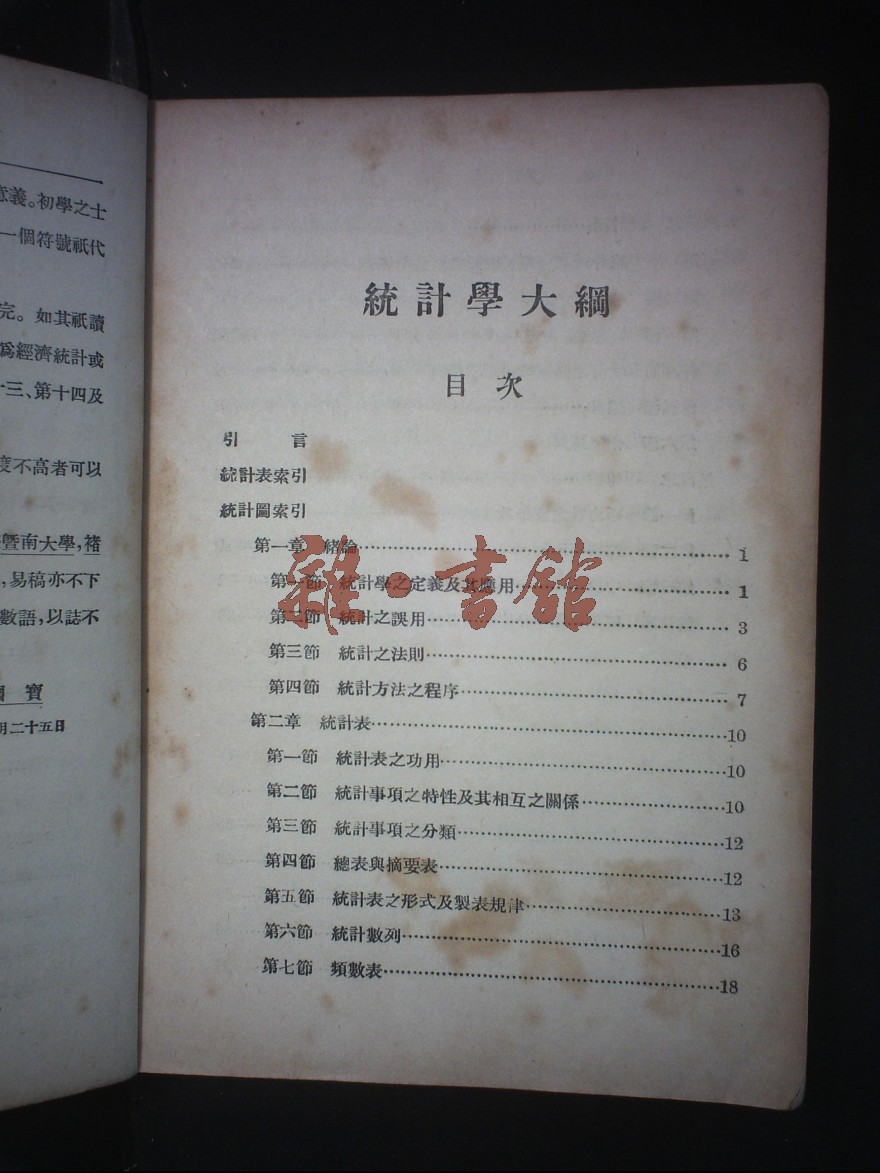 意義。初學之士
一個符號祇代
完。如其祇讀
爲經濟統計或
十三、第十四及
度不高者可以
暨南大學,褚
,易稿亦不下
數語,以誌不
國寶
月二十五日
統計學大綱
目次
引言
統計表索引
統計圖索引
第一章 緒論 1
第一節 統計學之定義及其應用 1
第二節 統計之誤用 3
第三節 統計之法則 6
第四節 統計方法之程序 7
第二章 統計表 10
第一節 統計表之功用 10
第二節 統計事項之特性及其相互之關係 10
第三節 統計事項之分類 12
第四節 總表與摘要表 12
第五節 統計表之形式及製表規律 13
第六節 統計數列 16
第七節 頻數表 18
雜·書館